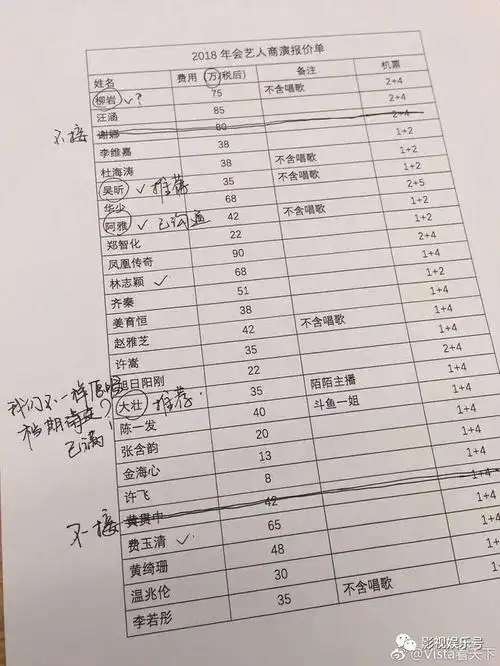 2018 年会艺人商演报价单
姓名 费用 万(税后) 备注 机票
柳岩 ✓? 75 不含唱歌 2+4
汪涵 85 2+4
不接 谢娜 80 2+4
李维嘉 38 1+2
杜海涛 38 不含唱歌 1+2
吴昕 ✓ 推荐 35 不含唱歌 1+2
华少 68 2+5
阿雅 ✓ 已沟通 42 不含唱歌 1+2
郑智化 22 1+2
凤凰传奇 90 2+4
林志颖 ✓ 68 1+4
齐秦 51 1+2
姜育恒 38 1+4
赵雅芝 42 不含唱歌 1+4
许嵩 35 1+4
旭日阳刚 22 2+4
我们不一样
档期
已满
大壮 推荐 35 陌陌主播 1+4
陈一发 40 斗鱼一姐 1+4
张含韵 20 1+4
金海心 13 1+4
许飞 8 1+4
不接 黄贯中 42 1+4
费玉清 ✓ 65 1+4
黄绮珊 48 1+4
温兆伦 30 1+4
李若彤 35 不含唱歌
影视娱乐号
@Vista看天下